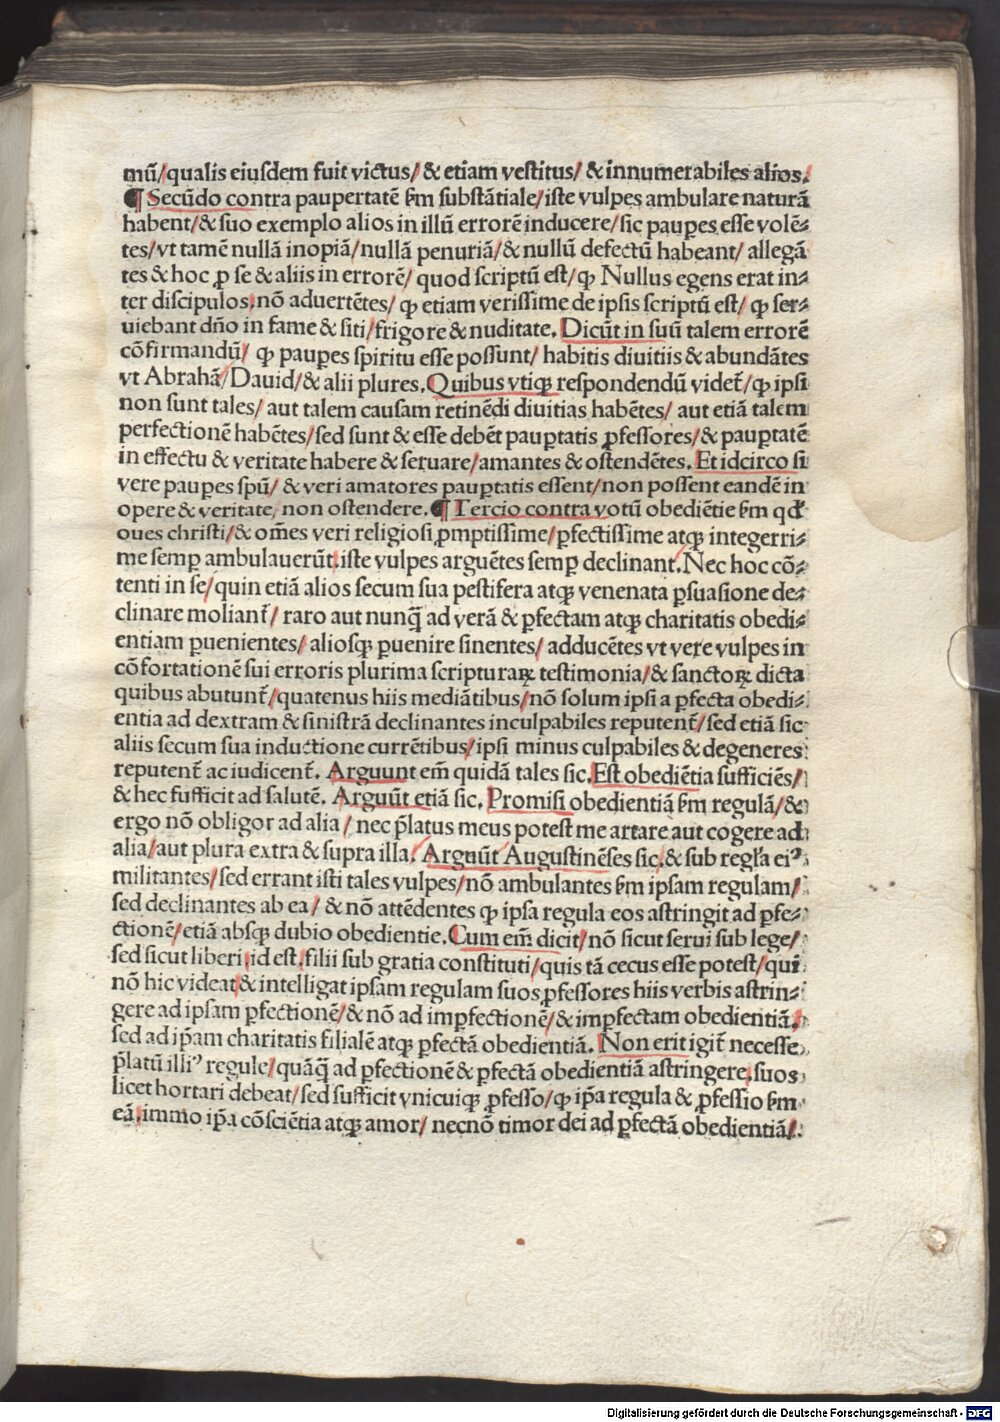 mū/qualis eiuſdem fuit victus/& etiam veſtitus/& innumerabiles alios.
¶ Secūdo contra paupertatē ẜm ſubſtātiale/iſte vulpes ambulare naturā
habent/& ſuo exemplo alios in illū errorē inducere/ſic paupes eſſe volē⸗
tes/vt tamē nullā inopiā/nullā penuriā/& nullū defectū habeant/allegā
tes & hoc ꝓ ſe & aliis in errorē/quod ſcriptū eſt/ꝙ Nullus egens erat in⸗
ter diſcipulos.nō aduertētes/ꝙ etiam veriſſime de ipſis ſcriptū eſt/ꝙ ſer⸗
uiebant dño in fame & ſiti/frigore & nuditate. Dicūt in ſuū talem errorē
cōfirmandū/ ꝙ paupes ſpiritu eſſe poſſunt/habitis diuitiis & abundātes
vt Abrahā/Dauid/& alii plures. Quibus vtiqꝫ reſpondendū videt̄/ꝙ ipſi
non ſunt tales/aut talem cauſam retinēdi diuitias habētes/aut etiā talem
perfectionē habētes/ſed ſunt & eſſe debēt paup̱tatis ꝓfeſſores/& paup̱tatē
in effectu & veritate habere & ſeruare/amantes & oſtendētes. Et idcirco ſi
vere paup̱es ſpū/ & veri amatores paup̱tatis eſſent/non poſſent eandē in
opere & veritate, non oſtendere. ¶ Tercio contra votū obediētie ẜm qď
oues chriſti/& om̄es veri religioſi ꝓmptiſſime/ꝑfectiſſime atqꝫ integerri⸗
me ſemꝑ ambulauerūt.iſte vulpes arguētes ſemꝑ declinant. Nec hoc cō⸗
tenti in ſe/quin etiā alios ſecum ſua peſtifera atqꝫ venenata ꝑſuaſione de⸗
clinare moliant̄/ raro aut nunq̄ ad verā & ꝑfectam atqꝫ charitatis obedi⸗
entiam ꝑuenientes/alioſqꝫ ꝑuenire ſinentes/adducētes vt vere vulpes in
cōfortationē ſui erroris plurima ſcripturaꝝ teſtimonia/& ſanctoꝝ dicta
quibus abutunt̄/quatenus hiis mediātibus/nō ſolum ipſi a ꝑfecta obedi⸗
entia ad dextram & ſiniſtrā declinantes inculpabiles reputent̄/ſed etiā ſic
aliis ſecum ſua inductione currētibus/ipſi minus culpabiles & degeneres
reputent̄ ac iudicent̄. Arguunt em̄ quidā tales ſic. Eſt obediētia ſufficiēs/
& hec ſufficit ad ſalutē. Arguūt etiā ſic. Promiſi obedientiā ẜm regulā/&
ergo nō obligor ad alia/nec p̄latus meus poteſt me artare aut cogere ad
alia/aut plura extra & ſupra illa. Arguūt Auguſtinēſes ſic.& ſub regl̄a eiꝰ
militantes/ſed errant iſti tales vulpes/nō ambulantes ẜm ipſam regulam/
ſed declinantes ab ea/ & nō attēdentes ꝙ ipſa regula eos aſtringit ad ꝑfe⸗
ctionē/etiā abſqꝫ dubio obedientie. Cum em̄ dicit/nō ſicut ſerui ſub lege/
ſed ſicut liberi.id eſt.filii ſub gratia conſtituti/quis tā cecus eſſe poteſt/qui
nō hic videat & intelligat ipſam regulam ſuos ꝓfeſſores hiis verbis aſtrin⸗
gere ad ipſam ꝑfectionē/& nō ad imꝑfectionē/& imꝑfectam obedientiā.
ſed ad ip̄am charitatis filialē atqꝫ ꝑfectā obedientiā. Non erit igit̄ neceſſe
p̄latū illiꝰ regule/quāq̄ ad ꝑfectionē & ꝑfectā obedientiā aſtringere.ſuos
licet hortari debeat/ſed ſufficit vnicuiqꝫ ꝓfeſſo/ꝙ ip̄a regula & ꝓfeſſio ẜm
eā.immo ip̄a cōſciētia atqꝫ amor/necnō timor dei ad ꝑfectā obedientiā/
Digitalisierung gefördert durch die Deutsche Forschungsgemeinschaft - DFG